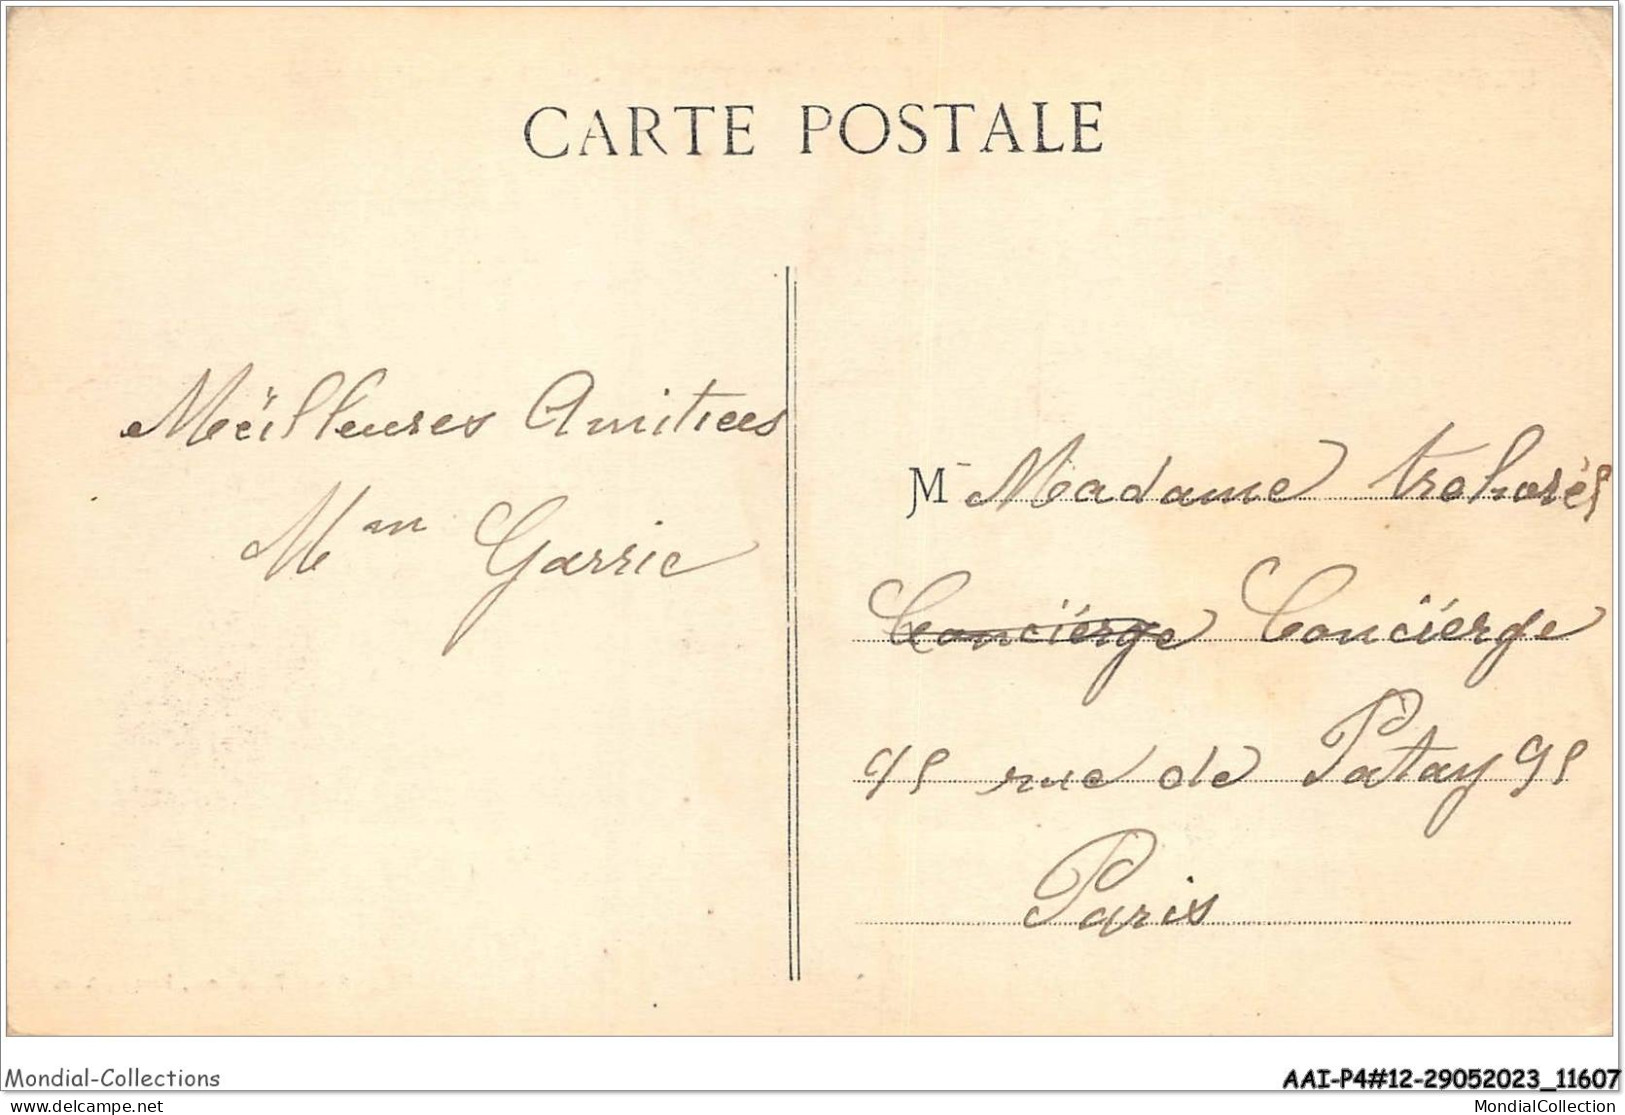 CARTE POSTALE
Meïlleures Amitiees
Mm Garric
M Madame
Conciërge Conciërge
95 rue de Patay 95
Paris
Mondial-Collections
AAI-P4#12-29052023_11607
www.delcampe.net
MondialCollection